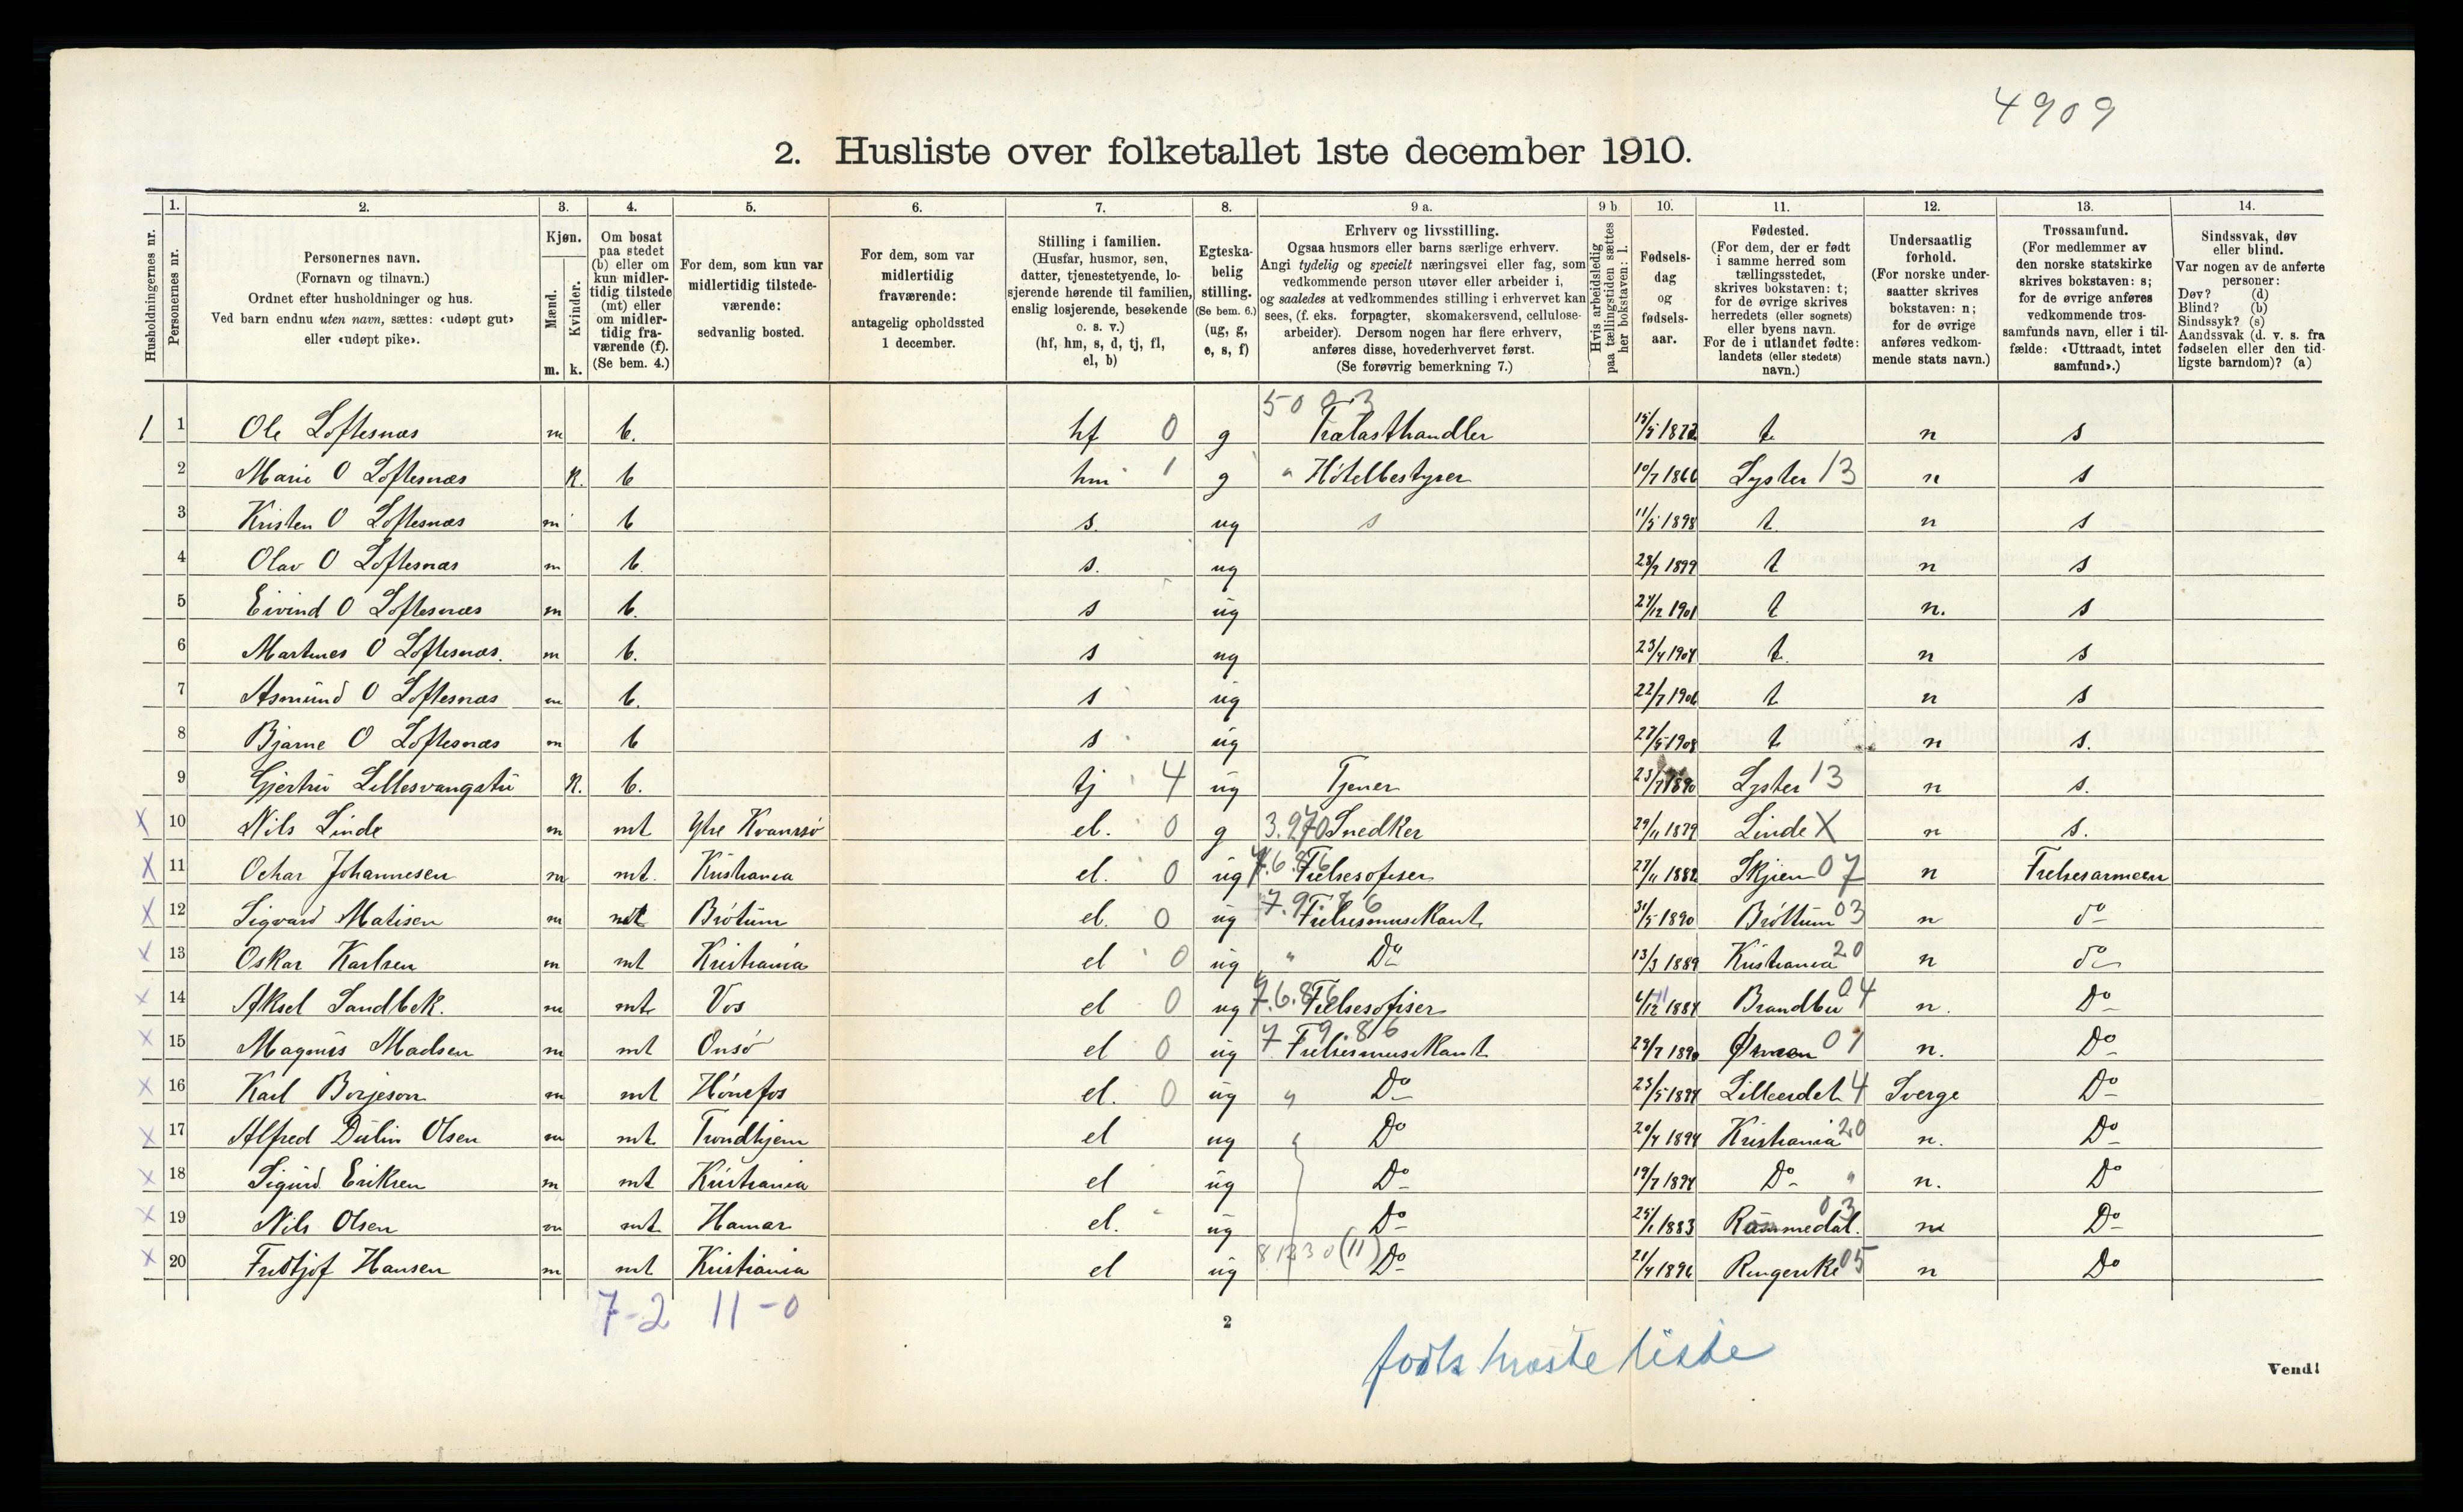 4909
2. Husliste over folketallet 1ste december 1910.
Husholdningernes nr.
1. Personernes nr.
2. Personernes navn. (Fornavn og tilnavn.) Ordnet efter husholdninger og hus. Ved barn endnu uten navn, sættes: «udøpt gut» eller «udøpt pike».
3. Kjøn. Mænd. Kvinder. m. k.
4. Om bosat paa stedet (b) eller om kun midlertidig tilstede (mt) eller om midlertidig fraværende (f). (Se bem. 4.)
5. For dem, som kun var midlertidig tilstedeværende: sedvanlig bosted.
6. For dem, som var midlertidig fraværende: antagelig opholdssted 1 december.
7. Stilling i familien. (Husfar, husmor, søn, datter, tjenestetyende, losjerende hørende til familien, enslig losjerende, besøkende o. s. v.) (hf, hm, s, d, tj, fl, el, b)
8. Egteskabelig stilling. (Se bem. 6.) (ug, g, e, s, f)
9 a. Erhverv og livsstilling. Ogsaa husmors eller barns særlige erhverv. Angi tydelig og specielt næringsvei eller fag, som vedkommende person utøver eller arbeider i, og saaledes at vedkommendes stilling i erhvervet kan sees, (f. eks. forpagter, skomakersvend, cellulosearbeider). Dersom nogen har flere erhverv, anføres disse, hovederhvervet først. (Se forøvrig bemerkning 7.)
9 b. Hvis arbeidsledig paa tællingstiden sættes her bokstaven: l.
10. Fødselsdag og fødselsaar.
11. Fødested. (For dem, der er født i samme herred som tællingsstedet, skrives bokstaven: t; for de øvrige skrives herredets (eller sognets) eller byens navn. For de i utlandet fødte: landets (eller stedets) navn.)
12. Undersaatlig forhold. (For norske undersaatter skrives bokstaven: n; for de øvrige anføres vedkommende stats navn.)
13. Trossamfund. (For medlemmer av den norske statskirke skrives bokstaven: s; for de øvrige anføres vedkommende trossamfunds navn, eller i tilfælde: «Uttraadt, intet samfund».)
14. Sindssvak, døv eller blind. Var nogen av de anførte personer: Døv? (d) Blind? (b) Sindssyk? (s) Aandssvak (d. v. s. fra fødselen eller den tidligste barndom)? (a)
5003
1 1 Ole Loftesnæs m b. hf 0 g Trælasthandler 15/5 1872 t n s
2 Marie O Loftesnæs k. b hm 1 g " Hótelbestyrer 10/7 1866 Lyster 13 n s
3 Kristen O Loftesnæs m b s. ug s 11/5 1898 t n s
4 Olav O Loftesnæs m b. s. ug 28/9 1899 t n s
5 Eivind O Loftesnæs m b. s ug 24/12 1901 t n. s
6 Martines O Loftesnæs. m b. s ug 23/4 1904 t. n s
7 Asmund O Loftesnæs m b. s ug 22/7 1906 t n s
8 Bjarne O Loftesnæs m b s ug 27/5 1908 t n s.
9 Gjertru k. b. tj 4 ug Tjener 1890 Lyster 13 n s.
X 10 Nils Linde m mt Ytre el. 0 g 3.970 Snedker 29/11 1879 Linde X n s.
X 11 Ochar Johannesen m mt. Kristiania el. 0 ug 7.6.86 Frelsesofiser 27/11 1882 Skjien 07 n Frelsesarmeen
X 12 Sigvard Matisen m mt Brótum el. 0 ug 7.9.86 Frelsesmusikant 31/5 1890 Bróttum 03 n do
X 13 Oskar Karlsen m mt Kristiania el 0 ug " Do 13/3 1889 Kristiania 20 n do
X 14 Aksel Sandbek. m mt Vos el 0 ug 7.6.86 Frelsesofiser 6/12 1884 Brandbu 04 n. Do
X 15 Magnus Madsen m mt Onsó el 0 ug 7.9.86 Frelsesmusikant 29/7 1890 n. Do
X 16 Karl Borjeson m mt Hónefos el. 0 ug " Do 25/5 1894 Lilleedet 4 Sverge Do
X 17 Alfred Dulin Olsen m mt Trondhjem el ug " Do 20/4 1894 Kristiania 20 n. Do
X 18 Sigurd Eriksen m mt Kristiania el ug Do 19/7 1894 Do " n. Do
X 19 Nils Olsen m mt Hamar el. ug Do 25/1 1883 03 n Do
X 20 Fridtjof Hansen m mt Kristiania el ug (11) Do 21/4 1896 Ringerike 05 n Do
7-2 11-0
2
Vend!